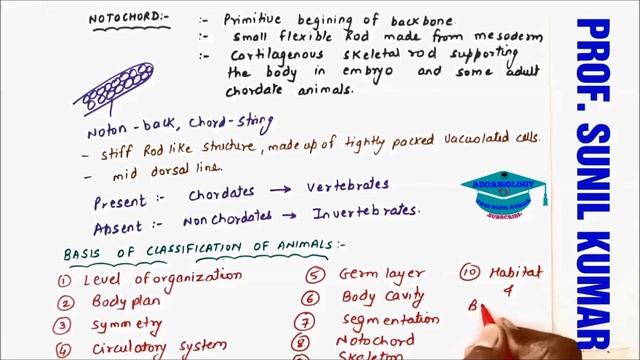 NOTOCHORD:-
:- Primitive begining of backbone.
:- Small flexible Rod made from mesoderm
:- Cartilagenous skeletal rod supporting
the body in embryo and some adult
chordate animals.
Noton - back, Chord - string
- stiff Rod like structure, made up of tightly packed vacuolated cells.
- mid dorsal line.
Present :- Chordates → Vertebrates
Absent :- Non Chordates → Invertebrates.
BASIS OF CLASSIFICATION OF ANIMALS:-
1 Level of organization
2 Body plan
3 Symmetry
4 Circulatory system
5 Germ layer
6 Body Cavity
7 Segmentation
8 Notochord
Skeleton
10 Habitat
&
B
ADDABIOLOGY
SUBSCRIBE
PROF. SUNIL KUMAR